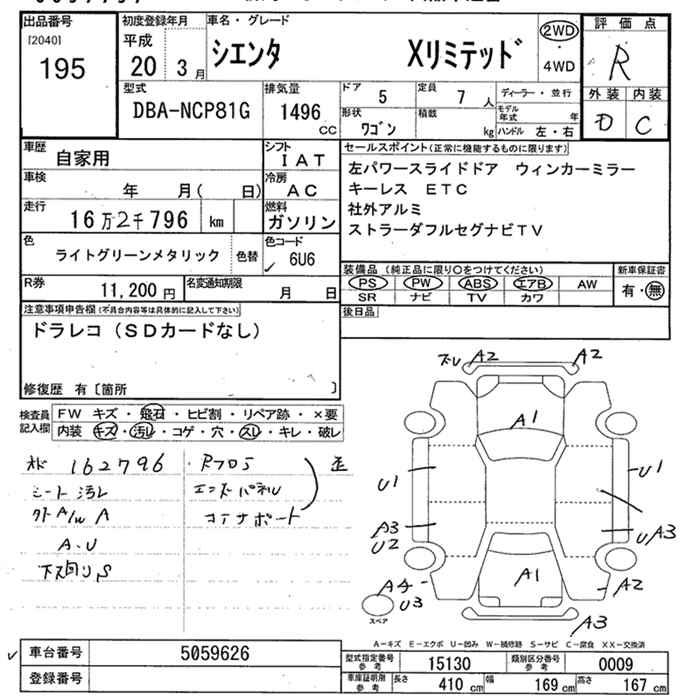 出品番号
[2040]
195
初度登録年月
平成
20 3月
車名・グレード
シエンタ Xリミテッド
2WD
・
4WD
評価点
R
外装 内装
D C
型式
DBA-NCP81G
排気量
1496 CC
ドア 5
定員 7人
形状 ワゴン
積載 kg
ディーラー・並行
モデル年式 年
ハンドル 左・右
車歴
自家用
シフト
IAT
車検
年 月( 日)
冷房
AC
走行
16万2千796 km
燃料
ガソリン
色
ライトグリーンメタリック
色替
色コード
6U6
R券
11,200円
名変通知期限
月 日
セールスポイント(正常に機能するものに限ります)
左パワースライドドア ウィンカーミラー
キーレス ETC
社外アルミ
ストラーダフルセグナビTV
装備品 (純正品に限り○をつけてください)
PS PW ABS エアB AW
SR ナビ TV カワ
新車保証書
有・無
後日品
注意事項申告欄(不具合内容等は具体的に記入して下さい)
ドラレコ(SDカードなし)
修復歴 有〔箇所 〕
検査員記入欄
FW キズ・飛石・ヒビ割・リペア跡・×要
内装 キズ・汚レ・コゲ・穴・スレ・キレ・破レ
162796
シート汚レ
A
A.U
下廻りS
RフロS
エンドパネルU
コーナーボート
歪
ズレ A2 A2
A1
U1 U1
A3
U2
UA3
A4
U3
A1
A2
A3
スペア
A−キズ E−エクボ U−凹み W−補修跡 S−サビ C−腐食 XX−交換済
車台番号 5059626
登録番号
型式指定番号 参考 15130
類別区分番号 参考 0009
車庫証明用 参考 長さ 410cm 幅 169cm 高さ 167cm